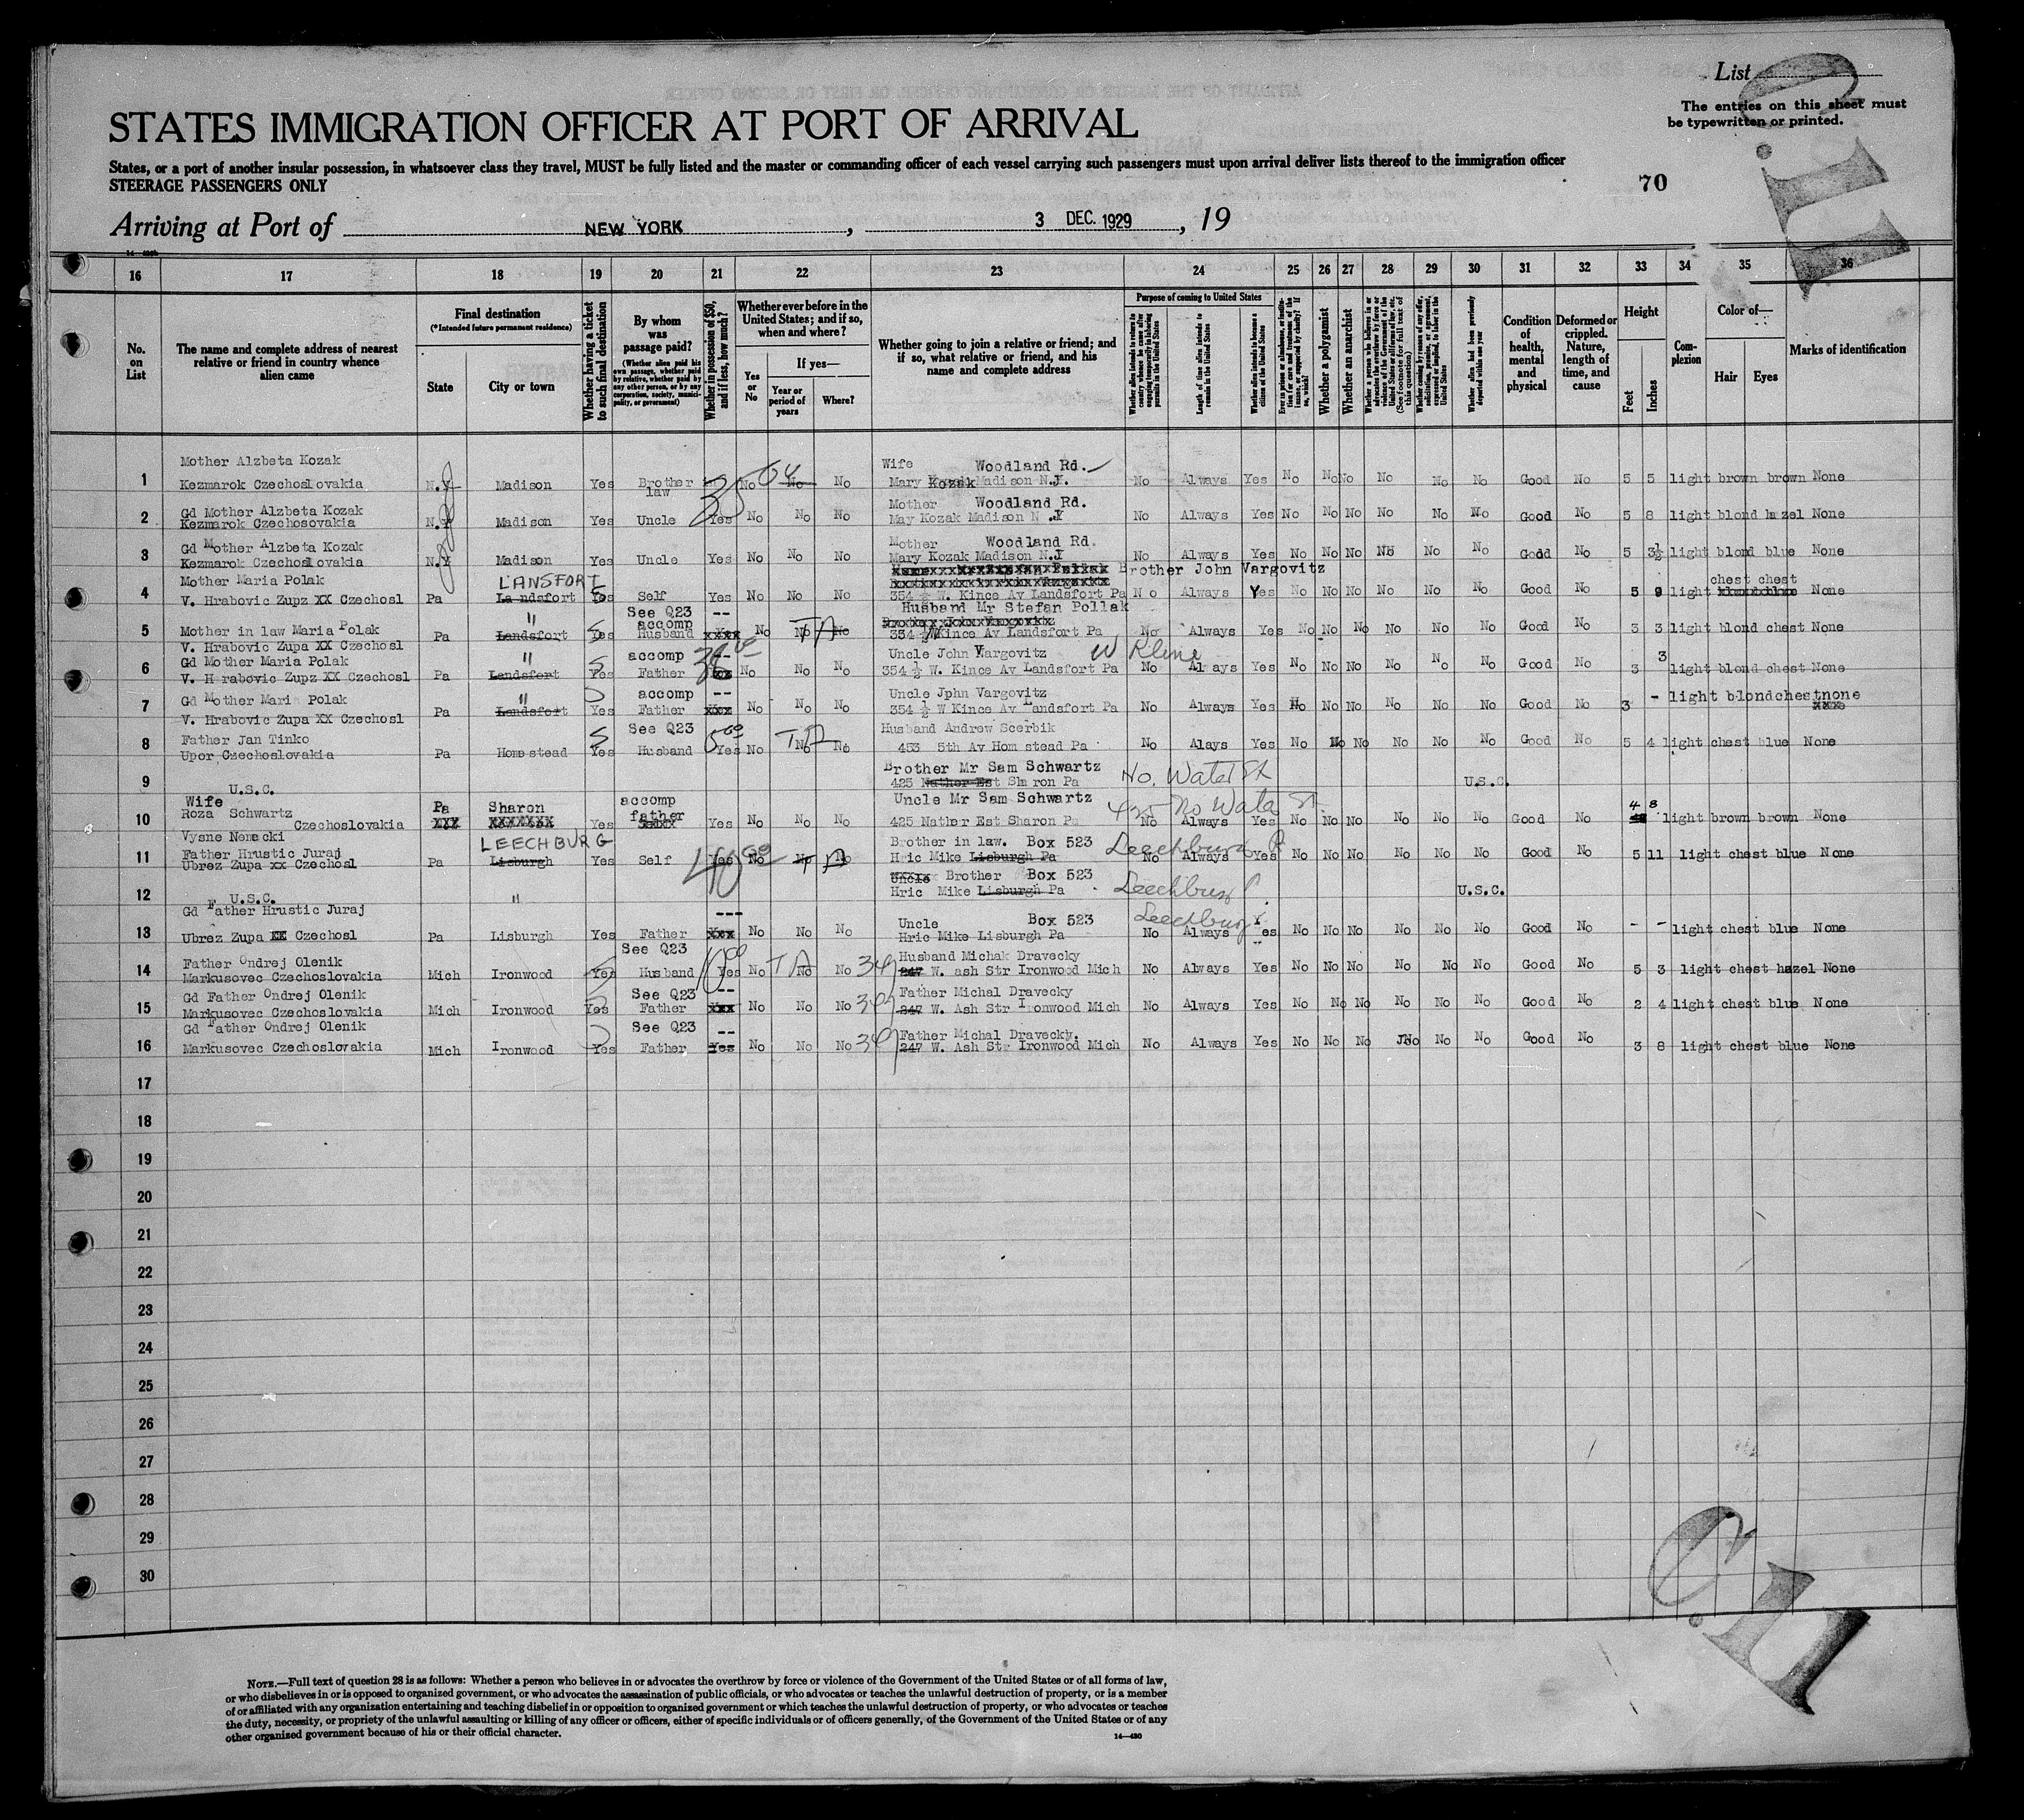 List
The entries on this sheet must
be typewritten or printed.
STATES IMMIGRATION OFFICER AT PORT OF ARRIVAL
States, or a port of another insular possession, in whatsoever class they travel, MUST be fully listed and the master or commanding officer of each vessel carrying such passengers must upon arrival deliver lists thereof to the immigration officer
STEERAGE PASSENGERS ONLY
70
Arriving at Port of NEW YORK , 3 DEC. 1929 , 19
16 17 18 19 20 21 22 23 24 25 26 27 28 29 30 31 32 33 34 35 36
No. on List
The name and complete address of nearest relative or friend in country whence alien came
Final destination
(*Intended future permanent residence)
State
City or town
Whether having a ticket to such final destination
By whom was passage paid?
(Whether alien paid his own passage, whether paid by relative, whether paid by any other person, or by any corporation, society, municipality, or government)
Whether in possession of $50, and if less, how much?
Whether ever before in the United States; and if so, when and where?
Yes or No
If yes—
Year or period of years
Where?
Whether going to join a relative or friend; and if so, what relative or friend, and his name and complete address
Purpose of coming to United States
Length of time alien intends to remain in the United States
Whether alien intends to become a citizen of the United States
Whether a polygamist
Whether an anarchist
Condition of health, mental and physical
Deformed or crippled. Nature, length of time, and cause
Height
Feet
Inches
Complexion
Color of—
Hair
Eyes
Marks of identification
Mother Alzbeta Kozak Wife Woodland Rd.
1 Kezmarok Czechoslovakia N.Y Madison Yes Brother law 35 No No No Mary Kozak Madison N.J. No Always Yes No No No No No No Good No 5 5 light brown brown None
Gd Mother Alzbeta Kozak Mother Woodland Rd.
2 Kezmarok Czechosovakia N.Y Madison Yes Uncle Yes No No No May Kozak Madison N.Y No Always Yes No No No No No No Good No 5 8 light blond hazel None
Gd Mother Alzbeta Kozak Mother Woodland Rd.
3 Kezmarok Czechoslovakia N.Y Madison Yes Uncle Yes No No No Mary Kozak Madison N.J No Always Yes No No No No No No Good No 5 3½ light blond blue None
Mother Maria Polak LANSFORT Brother John Vargovitz chest chest
4 V. Hrabovic Zupz XX Czechosl Pa Landsfort Yes Self Yes No No No 354 ½ W. Kince Av Landsfort Pa No Always Yes No No No No No No Good No 5 9 light None
See Q23 -- Husband Mr Stefan Pollak
" accomp
5 Mother in law Maria Polak Pa Landsfort Yes Husband xxxx No No TA No 354 ½ W Kince Av Landsfort Pa No Always Yes No No No No No No Good No 3 3 light blond chest None
V. Hrabovic Zupa XX Czechosl
Gd Mother Maria Polak " accomp -- Uncle John Vargovitz W Kline
6 V. Hrabovic Zupz XX Czechosl Pa Landsfort Yes Father No No No 354 ½ W. Kince Av Landsfort Pa No Always Yes No No No No No No Good No 3 3 light blond chest None
Gd Mother Maria Polak " accomp -- Uncle Jphn Vargovitz
7 V. Hrabovic Zupa XX Czechosl Pa Landsfort Yes Father xxx No No No 354 ½ W Kince Av Landsfort Pa No Always Yes No No No No No No Good No 3 - light blond chest none
Father Jan Tinko See Q23 Husband Andrew Scerbik
8 Upor Czechoslovakia Pa Homestead Yes Husband Yes No TA No No 453 5th Av Homstead Pa No Alays Yes No No No No No No Good No 5 4 light chest blue None
Brother Mr Sam Schwartz
9 U.S.C. 425 Nather Est Sharon Pa No. Water St U.S.C.
Wife Pa Sharon accomp Uncle Mr Sam Schwartz 425 No Water St. 4 8
10 Roza Schwartz Czechoslovakia XXX XXXXXXX Yes father Yes No No No 425 Nather Est Sharon Pa No Always Yes No No No No No No Good No light brown brown None
Vysne Nemecki
LEECHBURG Brother in law. Box 523 Leechburg P
11 Father Hrustic Juraj Pa Lisburgh Yes Self 40 Yes No No Hric Mike Lisburgh Pa No Always Yes No No No No No No Good No 5 11 light chest blue None
Ubrez Zupa xx Czechosl
Uncle Brother Box 523
12 U.S.C. " Hric Mike Lisburgh Pa Leechburg U.S.C.
Gd Father Hrustic Juraj --- Uncle Box 523 Leechburg
13 Ubrez Zupa XX Czechosl Pa Lisburgh Yes Father xxx No No No Hric Mike Lisburgh Pa No Always Yes No No No No No No Good No - - light chest blue None
Father Ondrej Olenik See Q23 Husband Michak Dravecky
14 Markusovec Czechoslovakia Mich Ironwood Yes Husband Yes No TA No No 349 247 W. ash Str Ironwood Mich No Always Yes No No No No No No Good No 5 3 light chest hazel None
Gd Father Ondrej Olenik See Q23 -- Father Michal Dravecky
15 Markusovec Czechoslovakia Mich Ironwood Yes Father xxx No No No 349 247 W. Ash Str Ironwood Mich No Always Yes No No No No No No Good No 2 4 light chest blue None
Gd Father Ondrej Olenik See Q23 -- Father Michal Dravecky.
16 Markusovec Czechoslovakia Mich Ironwood Yes Father Yes No No No 349 247 W. Ash Str Ironwood Mich No Always Yes No No No No No No Good No 3 8 light chest blue None
17
18
19
20
21
22
23
24
25
26
27
28
29
30
NOTE.—Full text of question 28 is as follows: Whether a person who believes in or advocates the overthrow by force or violence of the Government of the United States or of all forms of law,
or who disbelieves in or is opposed to organized government, or who advocates the assassination of public officials, or who advocates or teaches the unlawful destruction of property, or is a member
of or affiliated with any organization entertaining and teaching disbelief in or opposition to organized government or which teaches the unlawful destruction of property, or who advocates or teaches
the duty, necessity, or propriety of the unlawful assaulting or killing of any officer or officers, either of specific individuals or of officers generally, of the Government of the United States or of any
other organized government because of his or their official character.
14—430